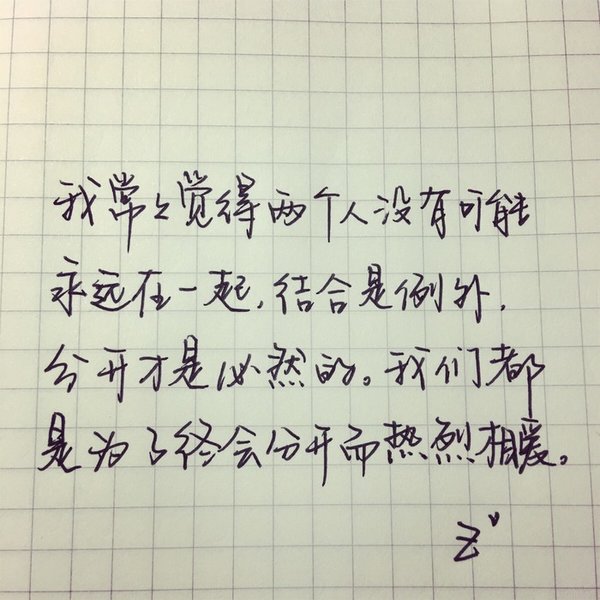 我常々觉得两个人没有可能
永远在一起,结合是例外,
分开才是必然的。我们都
是为了终会分开而热烈相爱。
Z